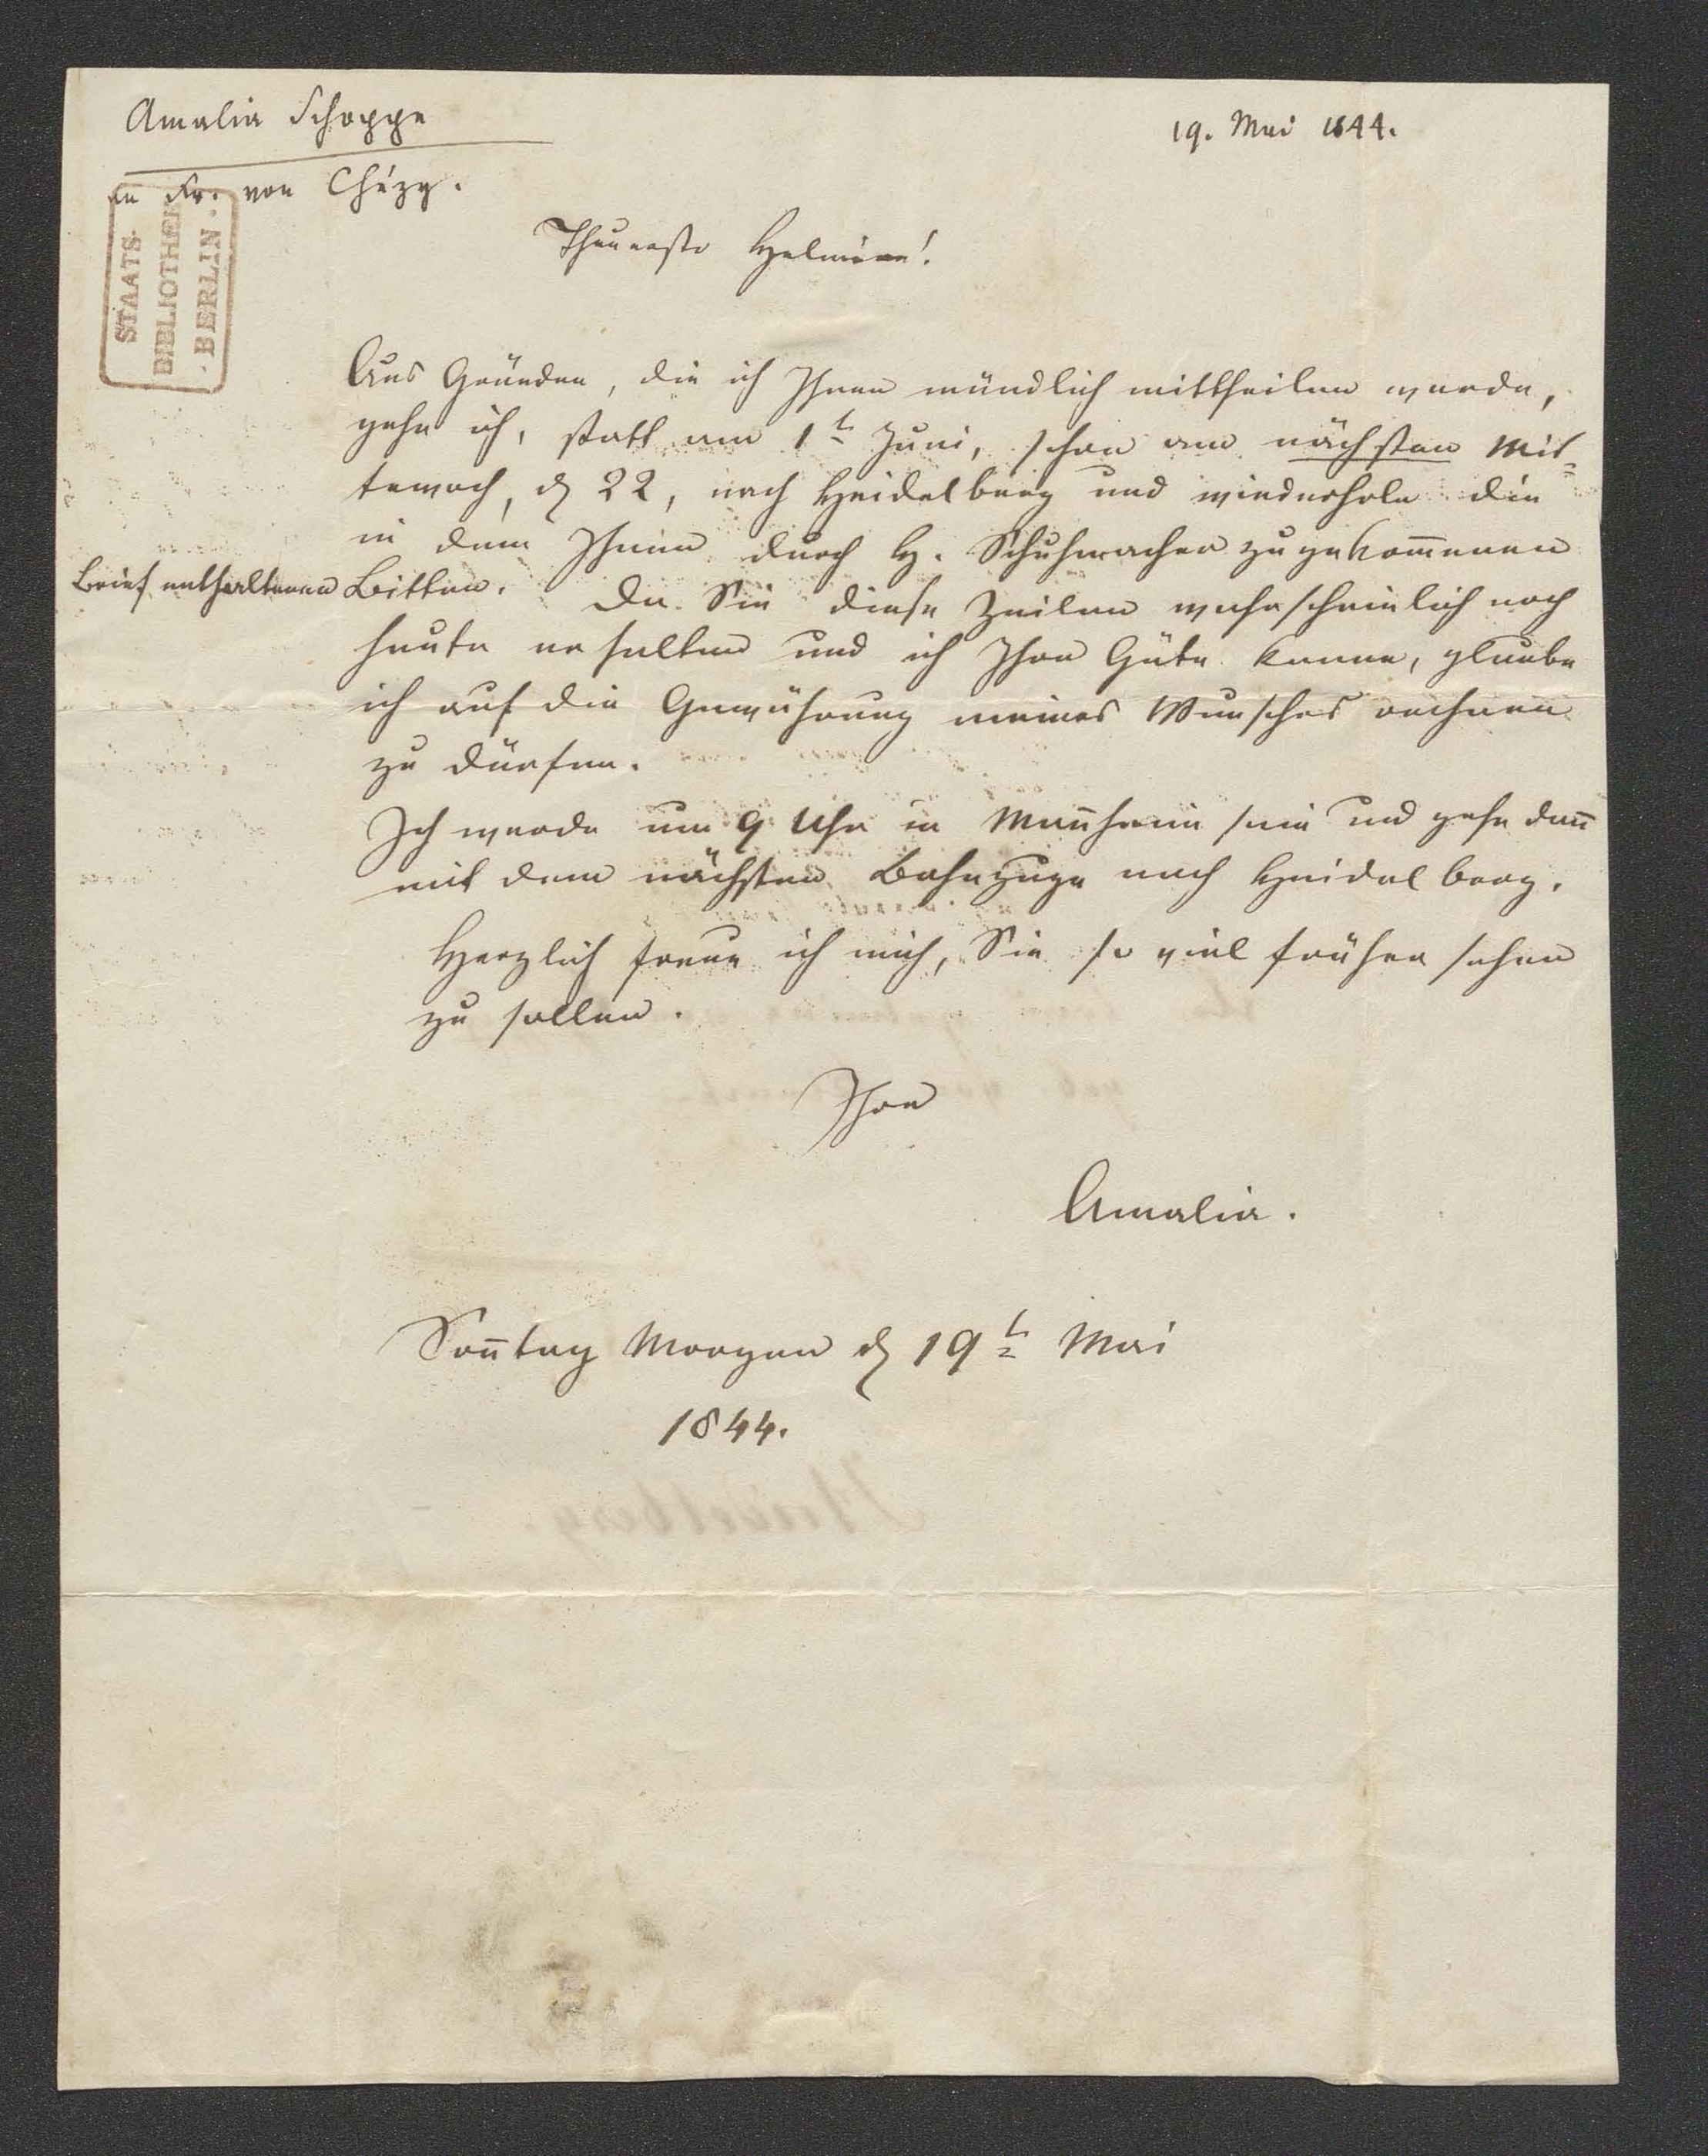 Amalia Schoppe
19. Mai 1844.
an Fr. von Chézy.
STAATS-
BIBLIOTHEK
· BERLIN ·
Theuerste Helmina!
Aus Gründen, die ich Ihnen mündlich mittheilen werde,
gehe ich, statt am 1t Juni, schon am nächsten Mit=
tewoch, d 22, nach Heidelberg und wiederhole die
in dem Ihnen durch H. Schuhmacher zugekom̅enen
Brief enthaltenen Bitten. Da Sie diese Zeilen wahrscheinlich noch
heute erhalten und ich Ihre Güte kenne, glaube
ich auf die Gewährung meines Wunsches rechnen
zu dürfen.
Ich werde um 9 Uhr in Man̅heim sein und gehe dan̅
mit dem nächsten Bahnzuge nach Heidelberg.
Herzlich freue ich mich, Sie so viel früher sehen
zu sollen.
Ihre
Amalia.
Son̅tag Morgen d 19t Mai
1844.